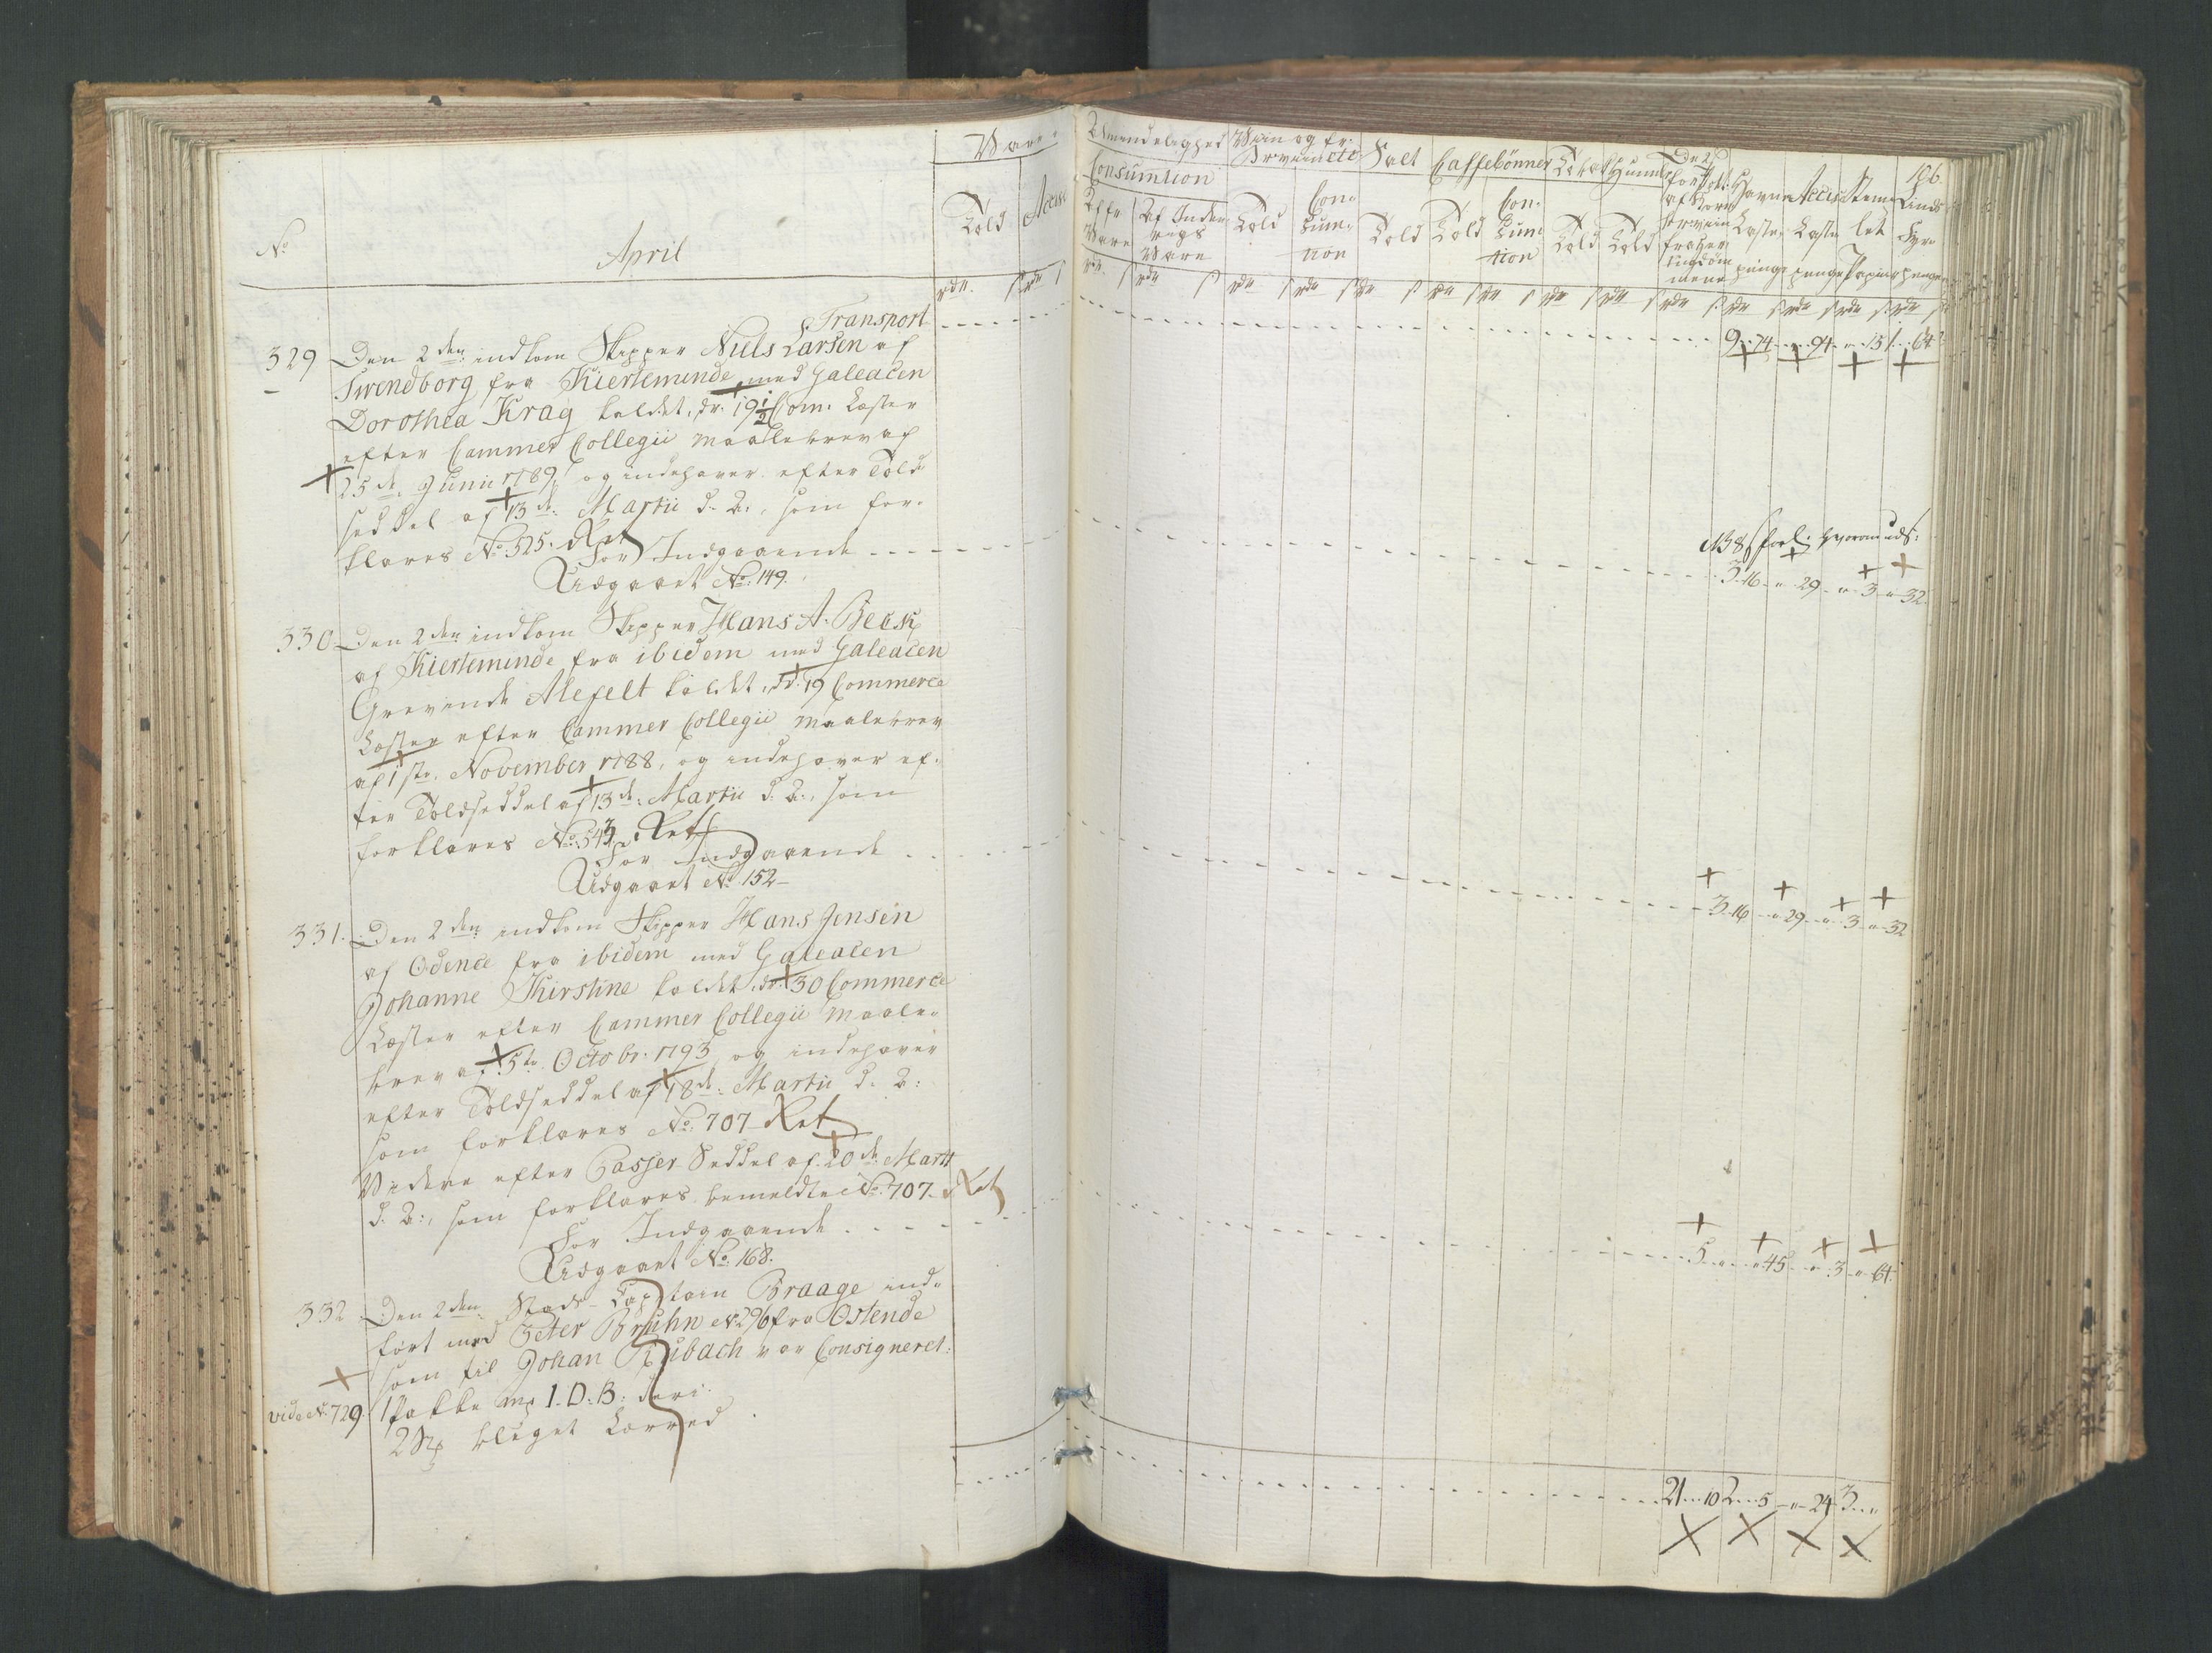 No
April
Vare
Told
Accise
rdr. s rdr s
Transport
329 Den 2den indkom Skipper Niels Larsen af
Swendborg fra Kierteminde med Galeacen
Dorothea Krag kaldet, dr. 19½ Com: Læster
efter Cammer Collegii Maalebrev af
25de Junii 1789, og indehaver efter Told
seddel af 13de Martii d. A:, som for-
klares No 525. Ret
For Indgaaende
Udgaaet No: 149.
330 Den 2den indkom Skipper Hans A. Beck
af Kierteminde fra ibidem med Galeacen
Grevinde Alefelt kaldet, dr. 19 Commerce
Læster efter Cammer Collegii Maalebrev
af 1ste November 1788, og indehaver ef-
ter Toldseddel af 13de Martii d. A:, som
forklares No: 543 Ret
For Indgaaende
Udgaaet No 152
331. Den 2den indkom Skipper Hans Jensen
af Odence fra ibidem med Galeacen
Johanne Kirstine kaldet, dr. 30 Commerce
Læster efter Cammer Collegii Maale-
brev af 5te Octobr: 1793, og indehaver
efter Toldseddel af 18de Martii d. A:
som forklares No: 707 Ret
Videre efter Passer Seddel af 20de Martii
d. A:, som forklares bemeldte No: 707. Ret
For Indgaaende
Udgaaet No: 168.
332 Den 2den Stads-Captain Braage ind-
ført med Peter Bruhn No 296 fra Ostende
som til Johan Dubach var Consigneret:
vide No. 729. 1 Pakke mrk I. D. B: deri
2 Stk bleget Lærred
106.
Consumtion
Viin og fr: Brviin etc
Salt
Caffebönner
Af Inden
rigs
Vare
Told
Con-
sum-
tion
Told
Told
Con-
sum
tion
Told
Told
Havne
Accise
Læste
penge
Fyr-
penge
9 74 94 15 1 64
3 16 29 3 32
3 16 29 3 32
5 45 3 64
21 10 2 5 24 3